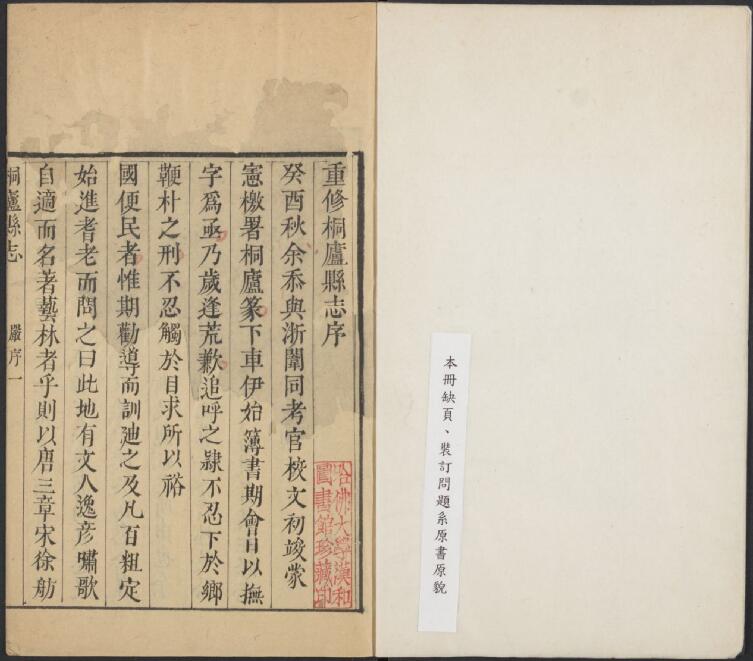 本冊缺頁、裝訂問題系原書原貌
重修桐廬縣志序
癸酉秋余忝與浙闈同考官校文初竣蒙
憲檄署桐廬篆下車伊始簿書期會日以撫
字為亟乃歲逢荒歉追呼之隸不忍下於鄉
鞭朴之刑不忍觸於目求所以裕
國便民者惟期勸導而訓廸之及凡百粗定
始進耆老而問之曰此地有文人逸彦嘯歌
自適而名著藝林者乎則以唐三章宋徐舫
桐廬縣志 嚴序一
哈佛大學漢和
圖書館珍藏印